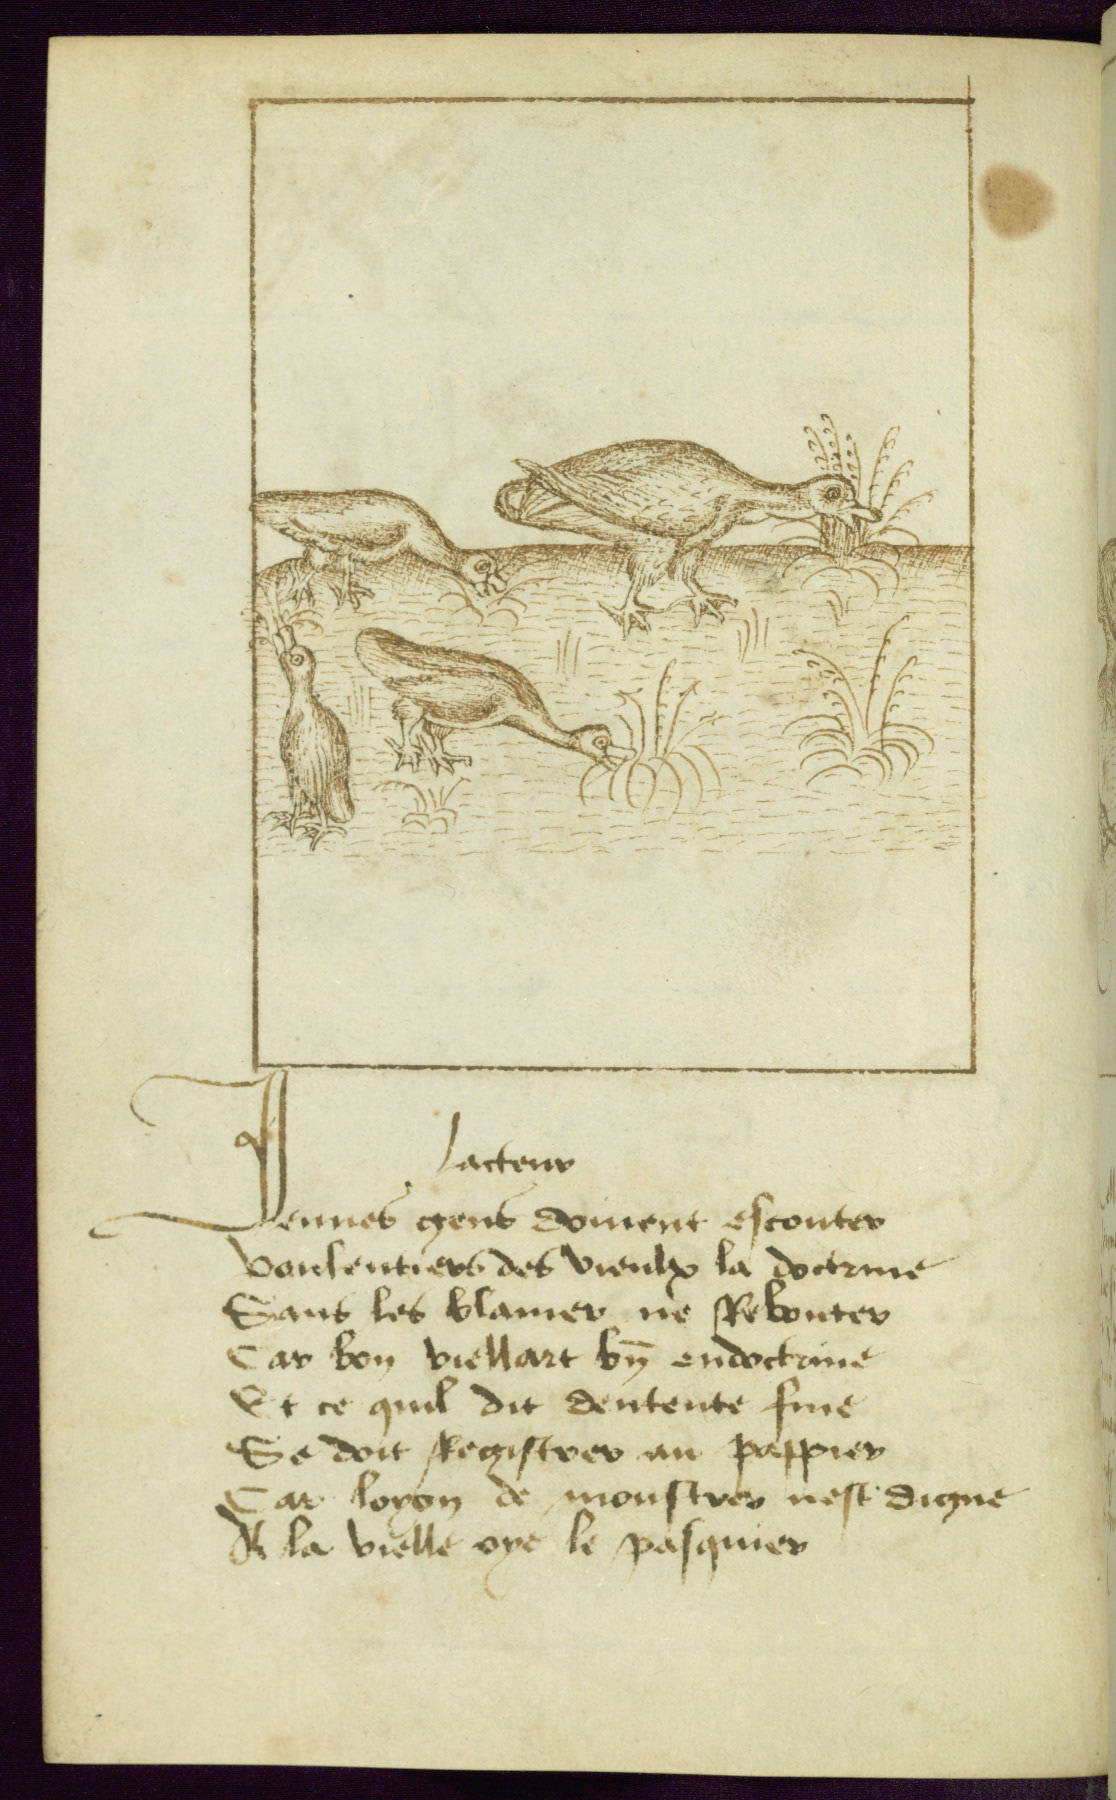 Lacteur
Jeunes gens doiuent escouter
Voulentiers des vieulx la doctrine
Sans les blamer ne Rebouter
Car bon viellart bn̄ endoctrine
Et ce quil dit dentente fine
Se doit Registrer au pappier
Car loyon de monstrer nest digne
A la vielle oye le pasquier